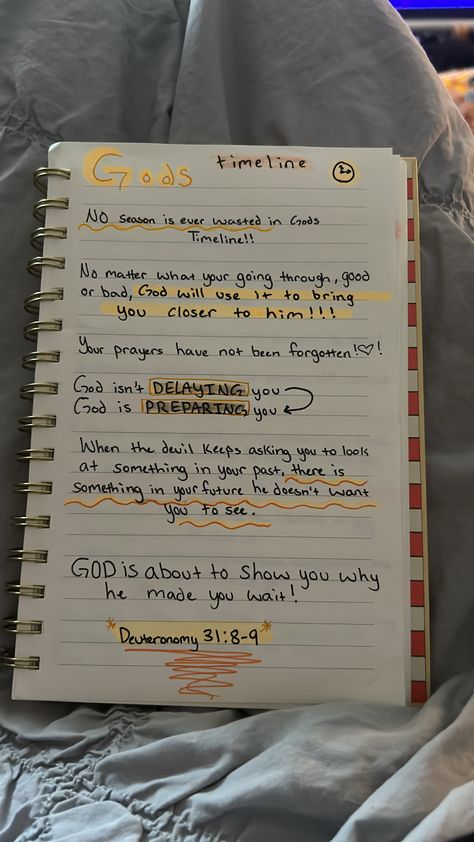 Gods timeline
No season is ever wasted in Gods
Timeline!!
No matter what your going through, good
or bad, God will use it to bring
you closer to him!!!
Your prayers have not been forgotten!♡!
God isn't DELAYING you
God is PREPARING you
When the devil keeps asking you to look
at something in your past, there is
something in your future he doesn't want
you to see.
GOD is about to show you why
he made you wait!
*Deuteronomy 31:8-9*